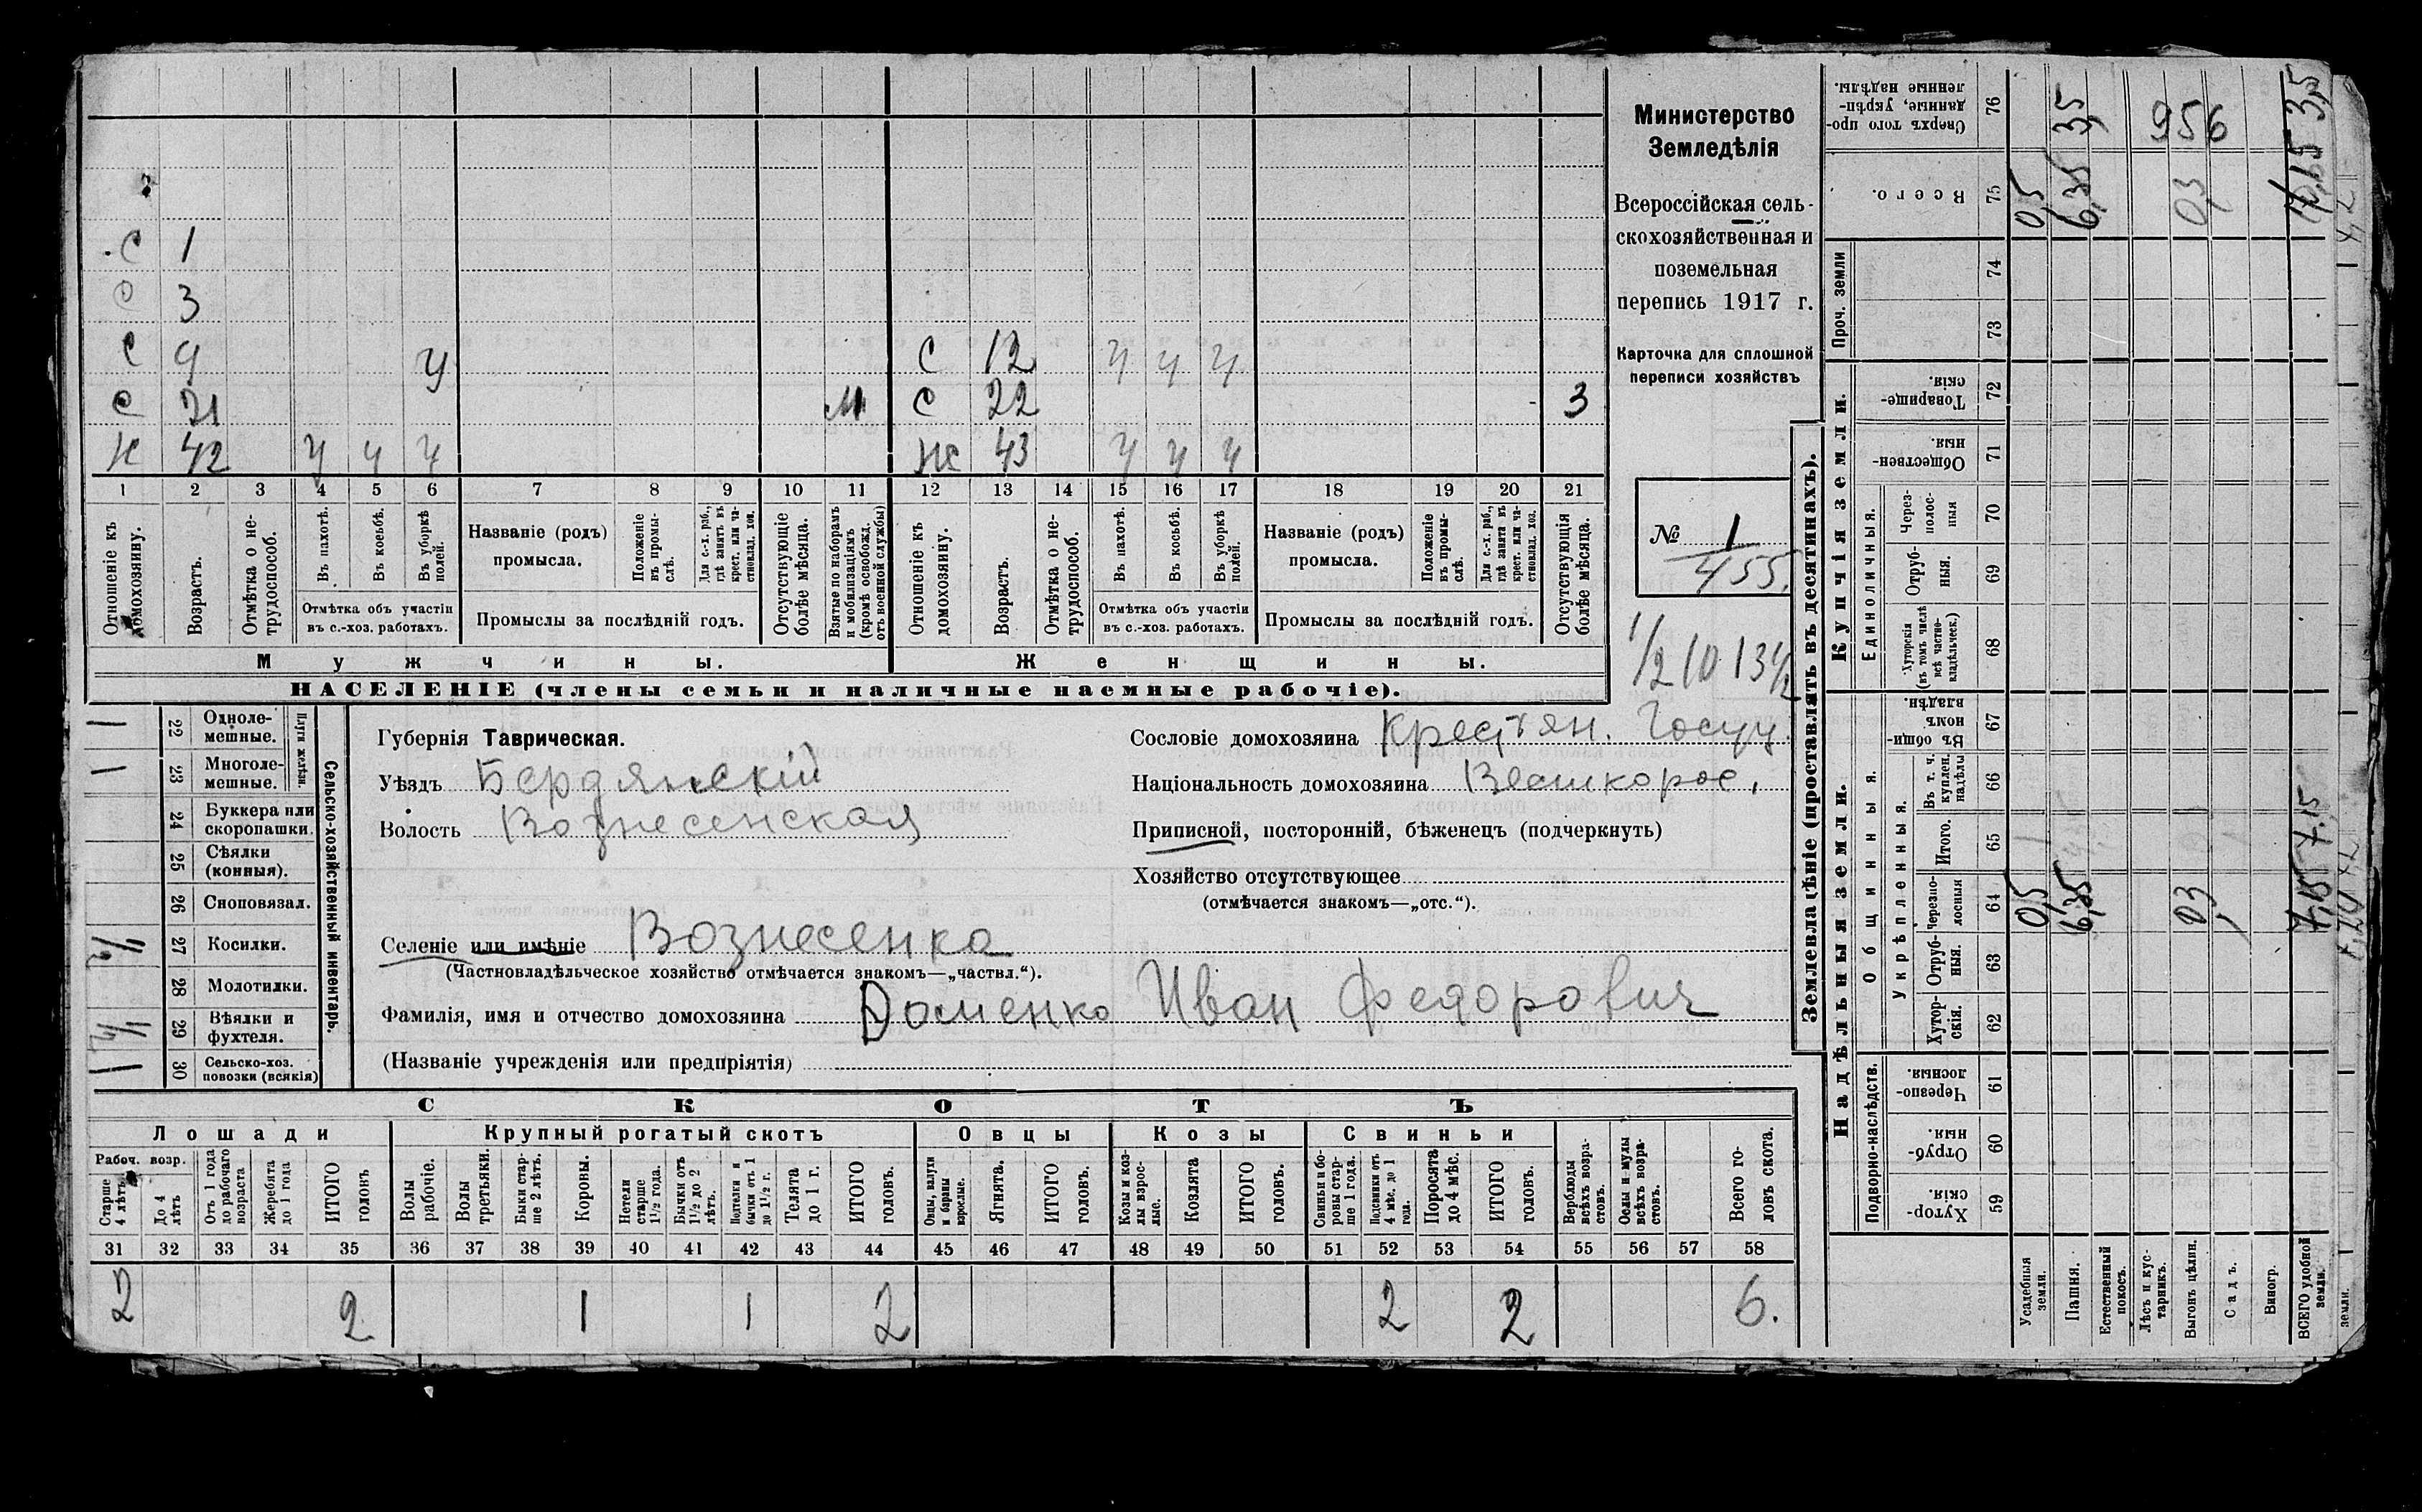 С 1
С 3
С 9 у С 12 у у у
С 21 м С 22 3
Х 42 у у у ж 43 у у у
1 2 3 4 5 6 7 8 9 10 11 12 13 14 15 16 17 18 19 20 21
Отношеніе къ домохозяину.
Возрастъ.
Отмѣтка о нетрудоспособ.
Въ пахотѣ.
Въ косьбѣ.
Въ уборкѣ полей.
Отмѣтка объ участіи
въ с.-хоз. работахъ.
Названіе (родъ)
промысла.
Положеніе въ промыслѣ.
Для с.-х. раб., гдѣ занятъ въ крест. или частновлад. хоз.
Промыслы за послѣдній годъ.
Отсутствующіе болѣе мѣсяца.
Взятые по наборамъ и мобилизаціямъ (кромѣ освобожд. отъ военной службы)
Отношеніе къ домохозяину.
Возрастъ.
Отмѣтка о нетрудоспособ.
Въ пахотѣ.
Въ косьбѣ.
Въ уборкѣ полей.
Отмѣтка объ участіи
въ с.-хоз. работахъ.
Названіе (родъ)
промысла.
Положеніе въ промыслѣ.
Для с.-х. раб., гдѣ занята въ крест. или частновлад. хоз.
Промыслы за послѣдній годъ.
Отсутствующія болѣе мѣсяца.
Мужчины. Женщины.
НАСЕЛЕНІЕ (члены семьи и наличные наемные рабочіе).
Министерство
Земледѣлія
Всероссійская сель-
скохозяйственная и
поземельная
перепись 1917 г.
Карточка для сплошной
переписи хозяйствъ
№ 1
455.
Сельско-хозяйственный инвентарь.
Плуги желѣзн.
22 Однолемешные.
23 Многолемешные.
24 Буккера или скоропашки.
25 Сѣялки (конныя).
26 Сноповязал.
27 Косилки.
28 Молотилки.
29 Вѣялки и фухтеля.
30 Сельско-хоз. повозки (всякія)
Губернія Таврическая.
Уѣздъ Бердянскій
Волость Вознесенская
Селеніе или имѣніе Вознесенка
(Частновладѣльческое хозяйство отмѣчается знакомъ—„частвл.“).
Фамилія, имя и отчество домохозяина Доменко Иван Федорович
(Названіе учрежденія или предпріятія)
Сословіе домохозяина Крестян. Госуд.
Національность домохозяина Великорос.
Приписной, посторонній, бѣженецъ (подчеркнуть)
Хозяйство отсутствующее
(отмѣчается знакомъ—„отс.“).
СКОТЪ
Лошади Крупный рогатый скотъ Овцы Козы Свиньи
Рабоч. возр.
Старше 4 лѣтъ
До 4 лѣтъ
Отъ 1 года до рабочаго возраста
Жеребята до 1 года
ИТОГО головъ
Волы рабочіе.
Волы третьяки.
Быки старше 2 лѣтъ.
Коровы.
Нетели старше 1½ года.
Бычки отъ 1½ до 2 лѣтъ.
Подтелки и бычки отъ 1 до 1½ г.
Телята до 1 г.
ИТОГО головъ.
Овцы, валухи и бараны взрослые.
Ягнята.
ИТОГО головъ.
Козы и козлы взрослые.
Козлята
ИТОГО головъ.
Свиньи и боровы старше 1 года.
Подсвинки отъ 4 мѣс. до 1 года.
Поросята до 4 мѣс.
ИТОГО головъ.
Верблюды всѣхъ возрастовъ.
Ослы и мулы всѣхъ возрастовъ.
Всего головъ скота.
31 32 33 34 35 36 37 38 39 40 41 42 43 44 45 46 47 48 49 50 51 52 53 54 55 56 57 58
2 2 1 1 2 2 2 6.
Землевладѣніе (проставлять въ десятинахъ).
Купчія земли.
Надѣльныя земли.
Сверхъ того проданные, укрѣпленные надѣлы. 76 3,5 956 3,5
Всего. 75 0,5 6,35 0,3
Проч. земли 74
73
Товарищескія. 72
Общественныя. 71
Единоличныя.
Черезполосныя 70
Отрубныя. 69
Хуторскія (въ томъ числѣ всѣ частновладѣльческ.) 68
Общинныя.
Въ общинномъ владѣн. 67
Укрѣпленныя.
Въ т. ч. куплен. надѣлы 66
Итого. 65
Черезполосныя 64 0,5 6,35 0,3 7,15
Отрубныя. 63
Хуторскія. 62
Подворно-наслѣдств.
Черезполосныя. 61
Отрубныя. 60
Хуторскія. 59
Усадебныя земли.
Пашня.
Естественный покосъ.
Лѣсъ и кустарникъ.
Выгонъ цѣлин.
Садъ.
Виногр.
ВСЕГО удобной земли.
земли.